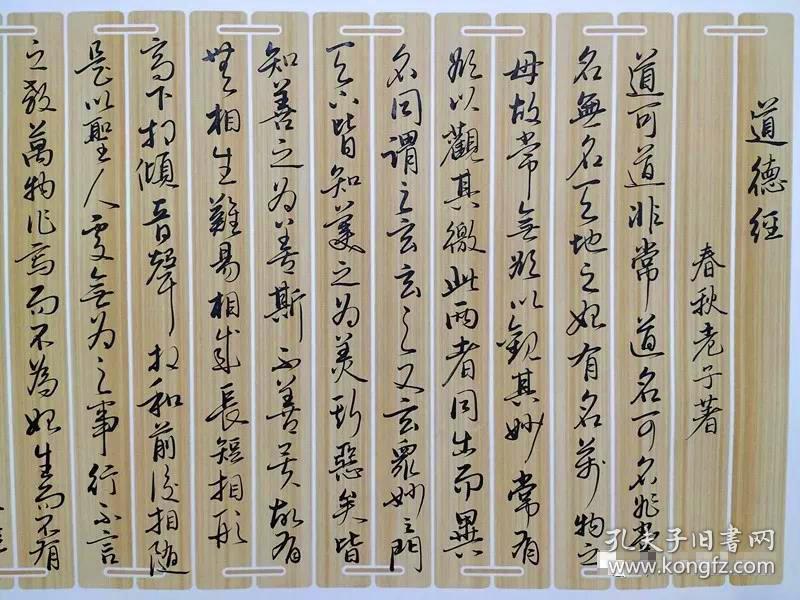 道德經
春秋老子著
道可道非常道名可名非常
名無名天地之始有名萬物之
母故常無欲以觀其妙常有
欲以觀其徼此兩者同出而異
名同謂之玄玄之又玄眾妙之門
天下皆知美之為美斯惡矣皆
知善之为善斯不善矣故有
無相生難易相成長短相形
高下相傾音聲相和前後相隨
是以聖人處無为之事行不言
之教萬物作焉而不為始生而不有
孔夫子旧书网
www.kongfz.com